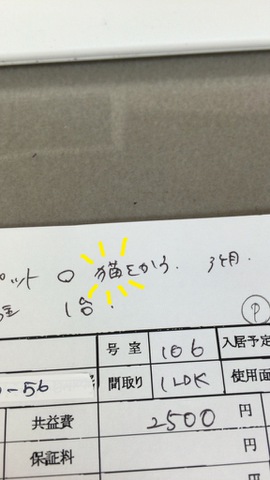 ペット ○ 猫をかう. 3ヶ月.
1台.
P
号室 106 入居予定
-56 間取り 1LDK 使用面
共益費 2500 円
保証料 円